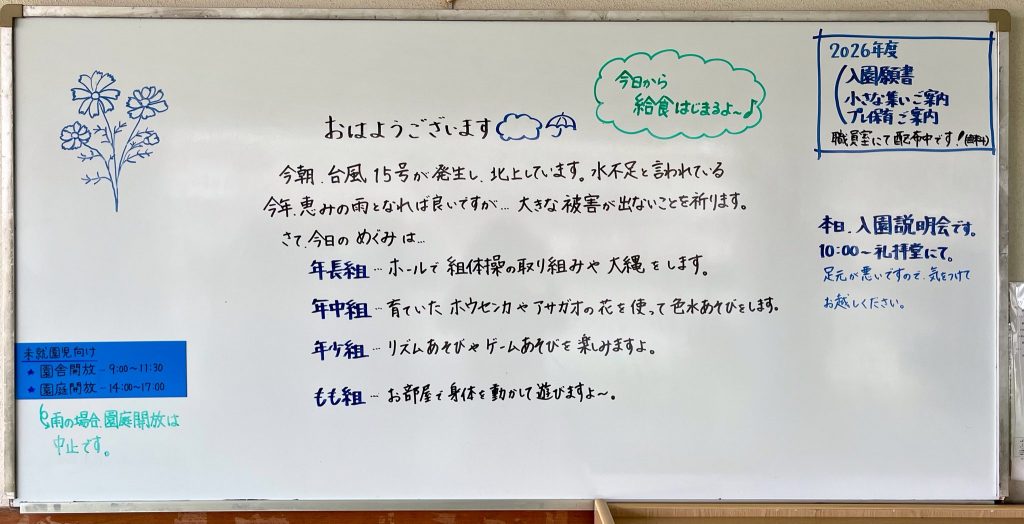 今日から
給食はじまるよ～♪
2026年度
入園願書
小さな集いご案内
プレ保育ご案内
職員室にて配布中です！
おはようございます
今朝、台風15号が発生し、北上しています。水不足と言われている
今年、恵みの雨となれば良いですが… 大きな被害が出ないことを祈ります。
さて、今日のめぐみは…
年長組…ホールで組体操の取り組みや大縄をします。
年中組…育ていたホウセンカやアサガオの花を使って色水あそびをします。
年少組…リズムあそびやゲームあそびを楽しみますよ。
もも組…お部屋で身体を動かして遊びますよ～。
本日、入園説明会です。
10:00～礼拝堂にて。
足元が悪いですので、気をつけて
お越しください。
未就園児向け
★園舎開放-9:00～11:30
★園庭開放-14:00～17:00
雨の場合、園庭開放は
中止です。